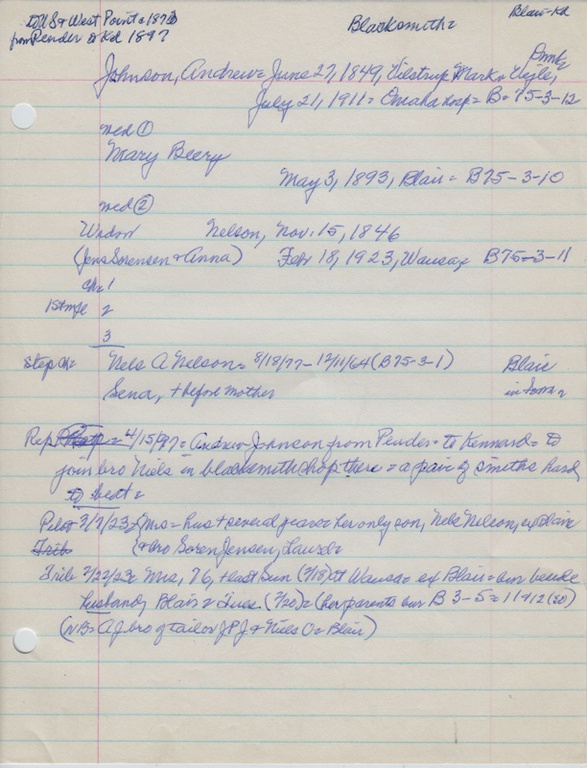 to US & West Point = 1873
from Pender to Kd 1897
Blacksmith =
Blair-Kd
Johnson, Andrew = June 27, 1849, Vilstrup Mark, Vejle, Dmk
July 21, 1911 = Omaha Hosp = B = 75-3-12
med ①
Mary Beery
May 3, 1893, Blair = B75-3-10
med ②
Widow Nelson, Nov. 15, 1846
(Jens Sorensen & Anna) Feb 18, 1923, Wausa = B75-3-11
Ch = 1
1st mge 2
3
Step Ch = Nels A Nelson = 8/18/77 - 12/11/64 (B75-3-1) Blair
Sena, + before mother
Rep 4/15/97 = Andrew Johnson from Pender = to Kennard = to
join bro Niels in blacksmith shop there = a pair of smiths hard
to beat =
Pilot 3/7/23 = Mrs = hus + several years = her only son, Nels Nelson, ex Blair
Trib & bro Soren Jensen, Laurel =
Trib 2/22/23 = Mrs, 76, + last Sun (2/18) at Wausa = ex Blair = bur beside
husband, Blair = Tues. (2/20) = (her parents bur B 3-5 = 11 & 12 (20)
(NB = AJ bro of tailor JPJ & Niels O = Blair)